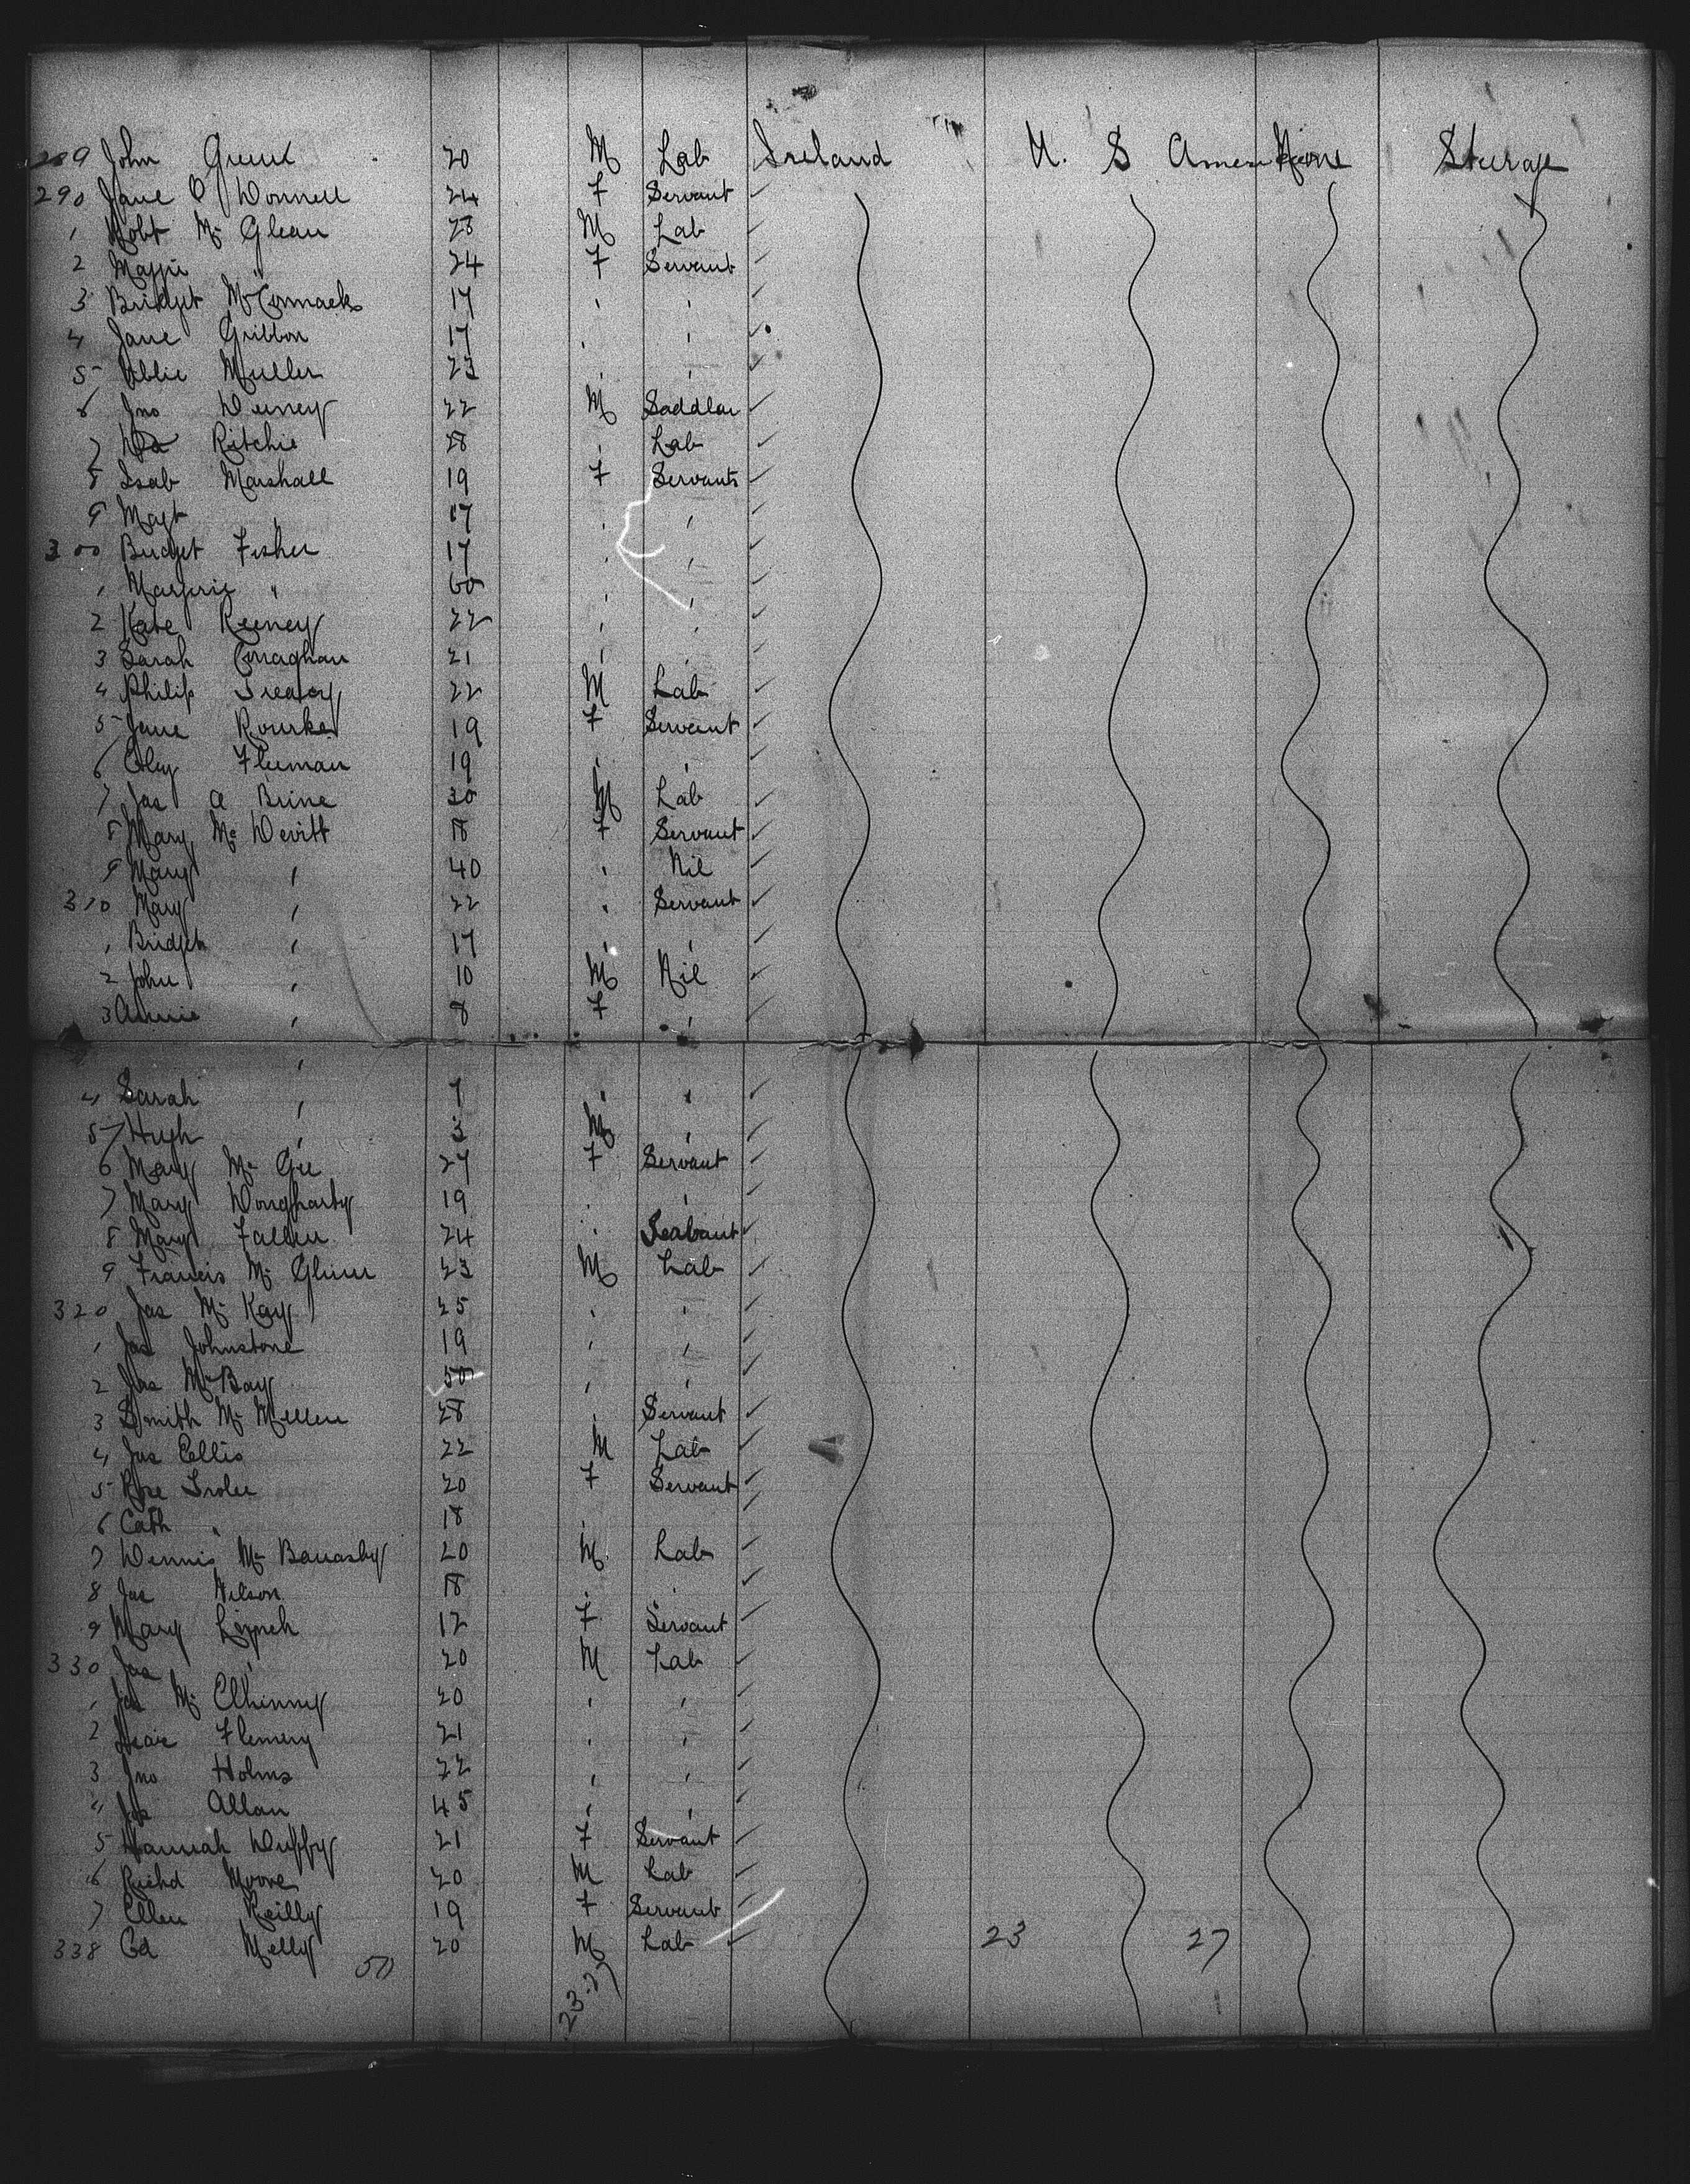 289 John 20 M Lab Ireland U. S America None Steerage
290 Jane O'Donnell 24 F Servant
1 Robt Mc Glean 28 M Lab
2 Maggie " 24 F Servant
3 Bridget McCormack 17 " "
4 Jane Gribbon 17 " "
5 Muller 23 " "
6 Jno 22 M Saddler
7 Ritchie 28 " Lab
8 Isab Marshall 19 F Servants
9 Magt " 17 " "
300 Bridget Fisher 17 " "
1 Marjorie " 60 " "
2 Kate Keeney 22 " "
3 Sarah Conaghan 21 " "
4 Philip Treacy 22 M Lab
5 Jane Rourke 19 F Servant
6 19 " "
7 Jas A Brine 30 M Lab
8 Mary Mc Devitt 18 F Servant
9 Mary " 40 " Nil
310 Mary " 22 " Servant
1 Bridget " 17 " "
2 John " 10 M Nil
3 Annie " 8 F "
4 Sarah " 7 " "
5 Hugh " 3 M "
6 Mary Mc Gee 27 F Servant
7 Mary Dougharty 19 " "
8 Mary Fallen 24 "
9 Francis Mc 23 M Lab
320 Jas Mc Kay 25 " "
1 Jas Johnstone 19 " "
2 Jas McBay 50 " "
3 Smith Mc Millen 28 " Servant
4 Jas Ellis 22 M Lab
5 Rose 20 F Servant
6 Cath " 18 "
7 Dennis Mc 20 M Lab
8 Jas Wilson 18 " "
9 Mary Lynch 12 F Servant
330 Jas " 20 M Lab
1 Jas Mc Elhinney 20 " "
2 Flemery 21 " "
3 Jno Holms 22 " "
4 Jas Allan 45 " "
5 Hannah Duffy 21 F Servant
6 Richd Moore 20 M Lab
7 Ellen Reilly 19 F Servant
338 Ed Melly 20 M Lab 23 27
50 23.27